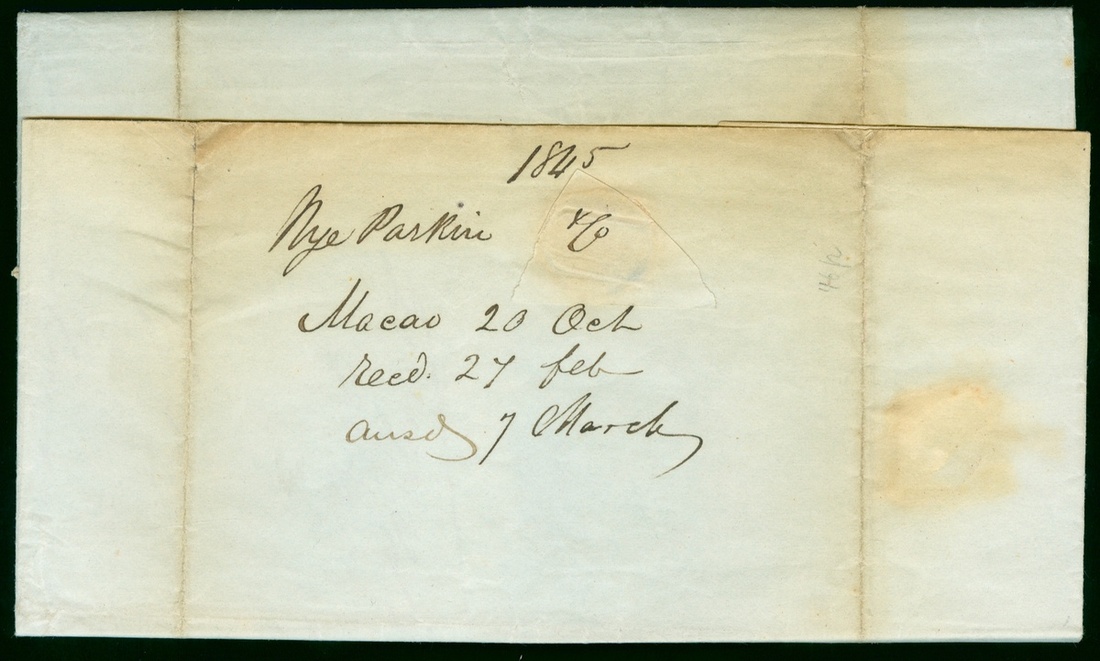 1845
Nye Parkin &Co
Macao 20 Oct
recd. 27 feb
ansd 7 March